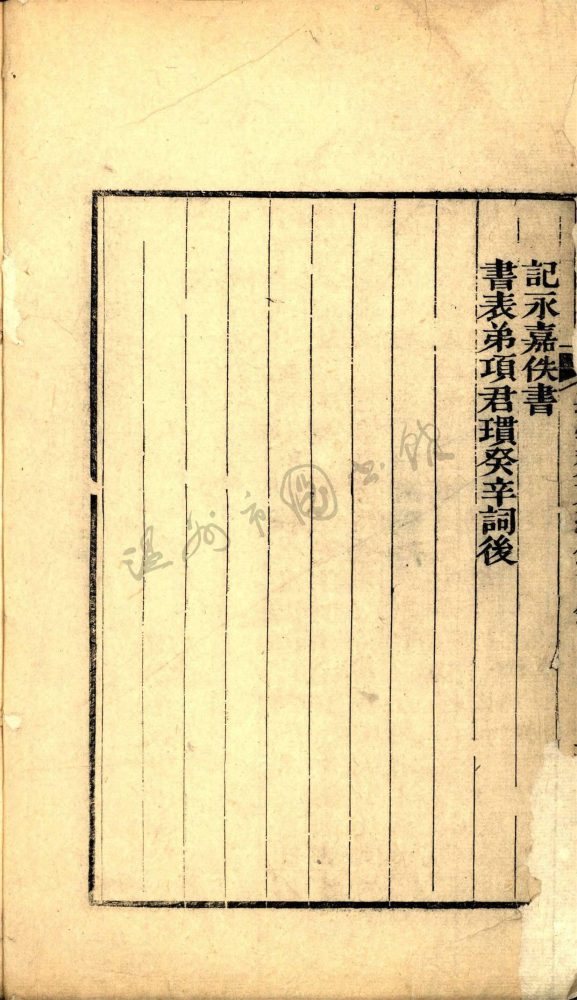 記永嘉佚書
書表弟項君瓆癸辛詞後
温州市圖书館